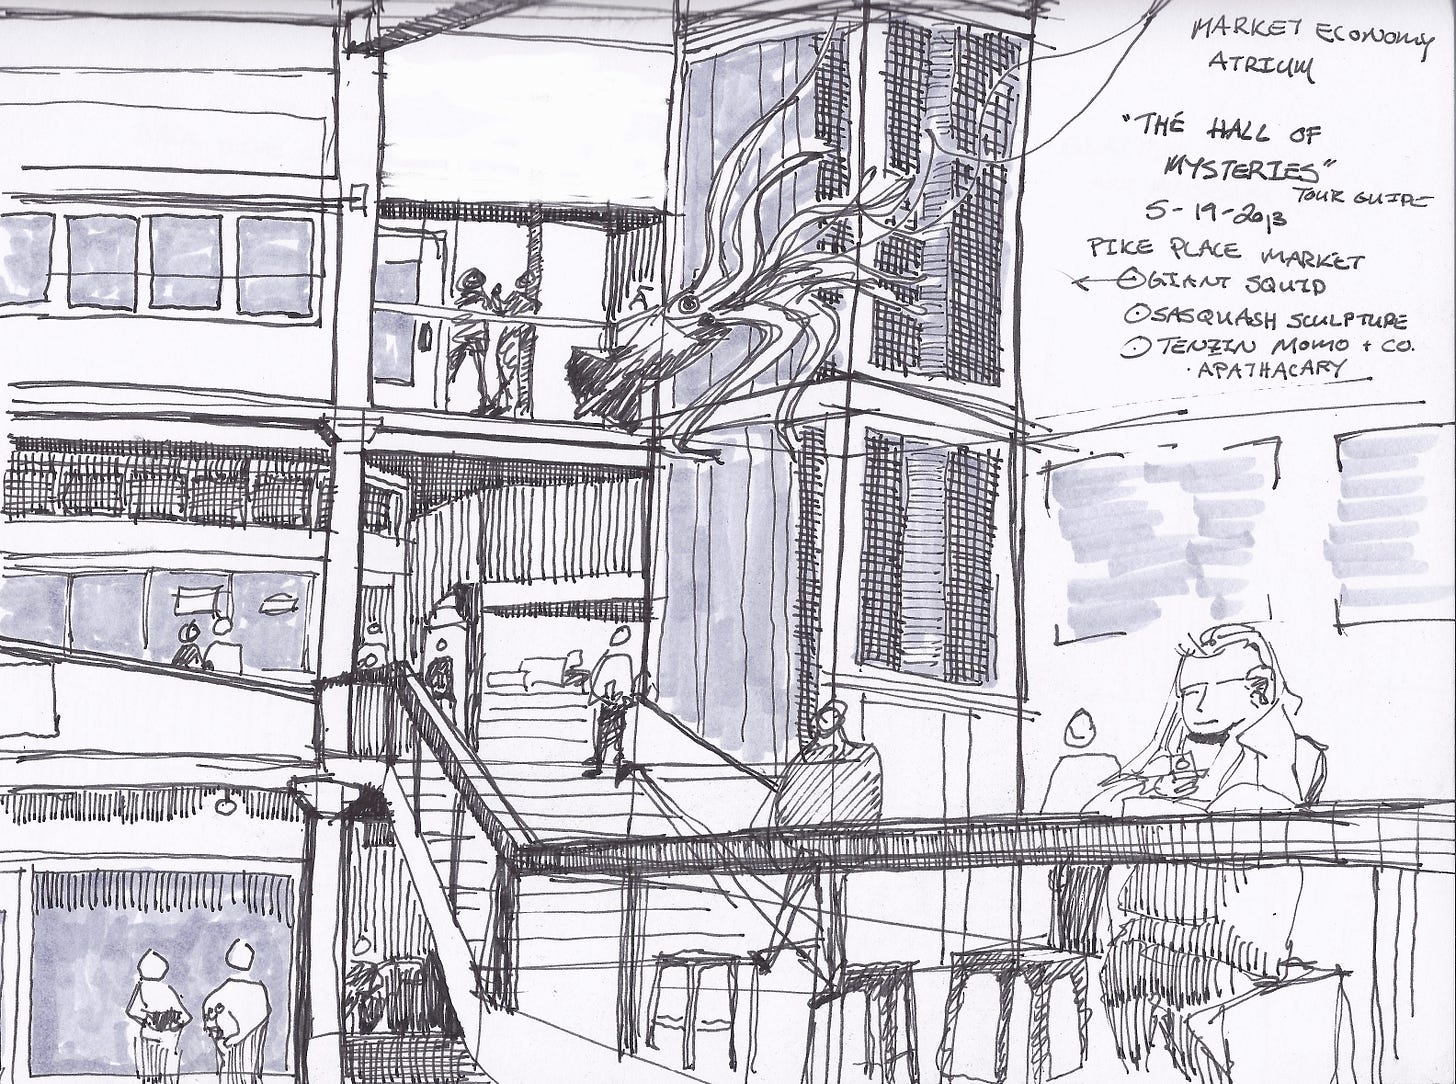 MARKET ECONOMY
ATRIUM
"THE HALL OF
MYSTERIES"
TOUR GUIDE
5-19-2013
PIKE PLACE MARKET
GIANT SQUID
SASQUASH SCULPTURE
TENZIN MOMO + CO.
· APATHACARY